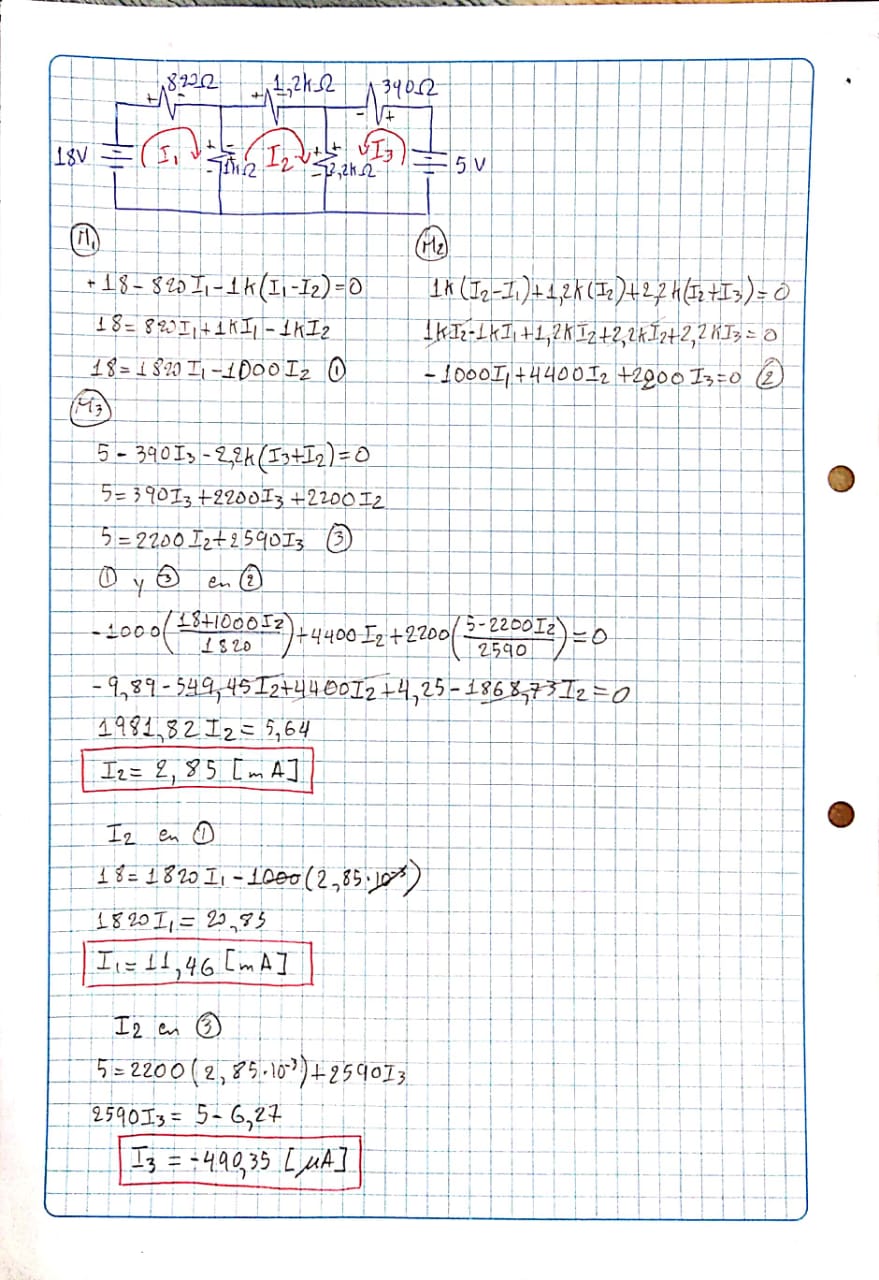 820Ω 1,2kΩ 390Ω
18V I₁ 1kΩ I₂ 2,2kΩ I₃ 5V
M₁
+18-820I₁-1k(I₁-I₂)=0
18=820I₁+1kI₁-1kI₂
18=1820I₁-1000I₂ ①
M₂
1k(I₂-I₁)+1,2k(I₂)+2,2k(I₂+I₃)=0
1kI₂-1kI₁+1,2kI₂+2,2kI₂+2,2kI₃=0
-1000I₁+4400I₂+2200I₃=0 ②
M₃
5-390I₃-2,2k(I₃+I₂)=0
5=390I₃+2200I₃+2200I₂
5=2200I₂+2590I₃ ③
① y ③ en ②
-1000((18+1000I₂)/1820)+4400I₂+2200((5-2200I₂)/2590)=0
-9,89-549,45I₂+4400I₂+4,25-1868,73I₂=0
1981,82I₂=5,64
I₂=2,85 [mA]
I₂ en ①
18=1820I₁-1000(2,85·10⁻³)
1820I₁=20,85
I₁=11,46 [mA]
I₂ en ③
5=2200(2,85·10⁻³)+2590I₃
2590I₃=5-6,27
I₃=-490,35 [μA]